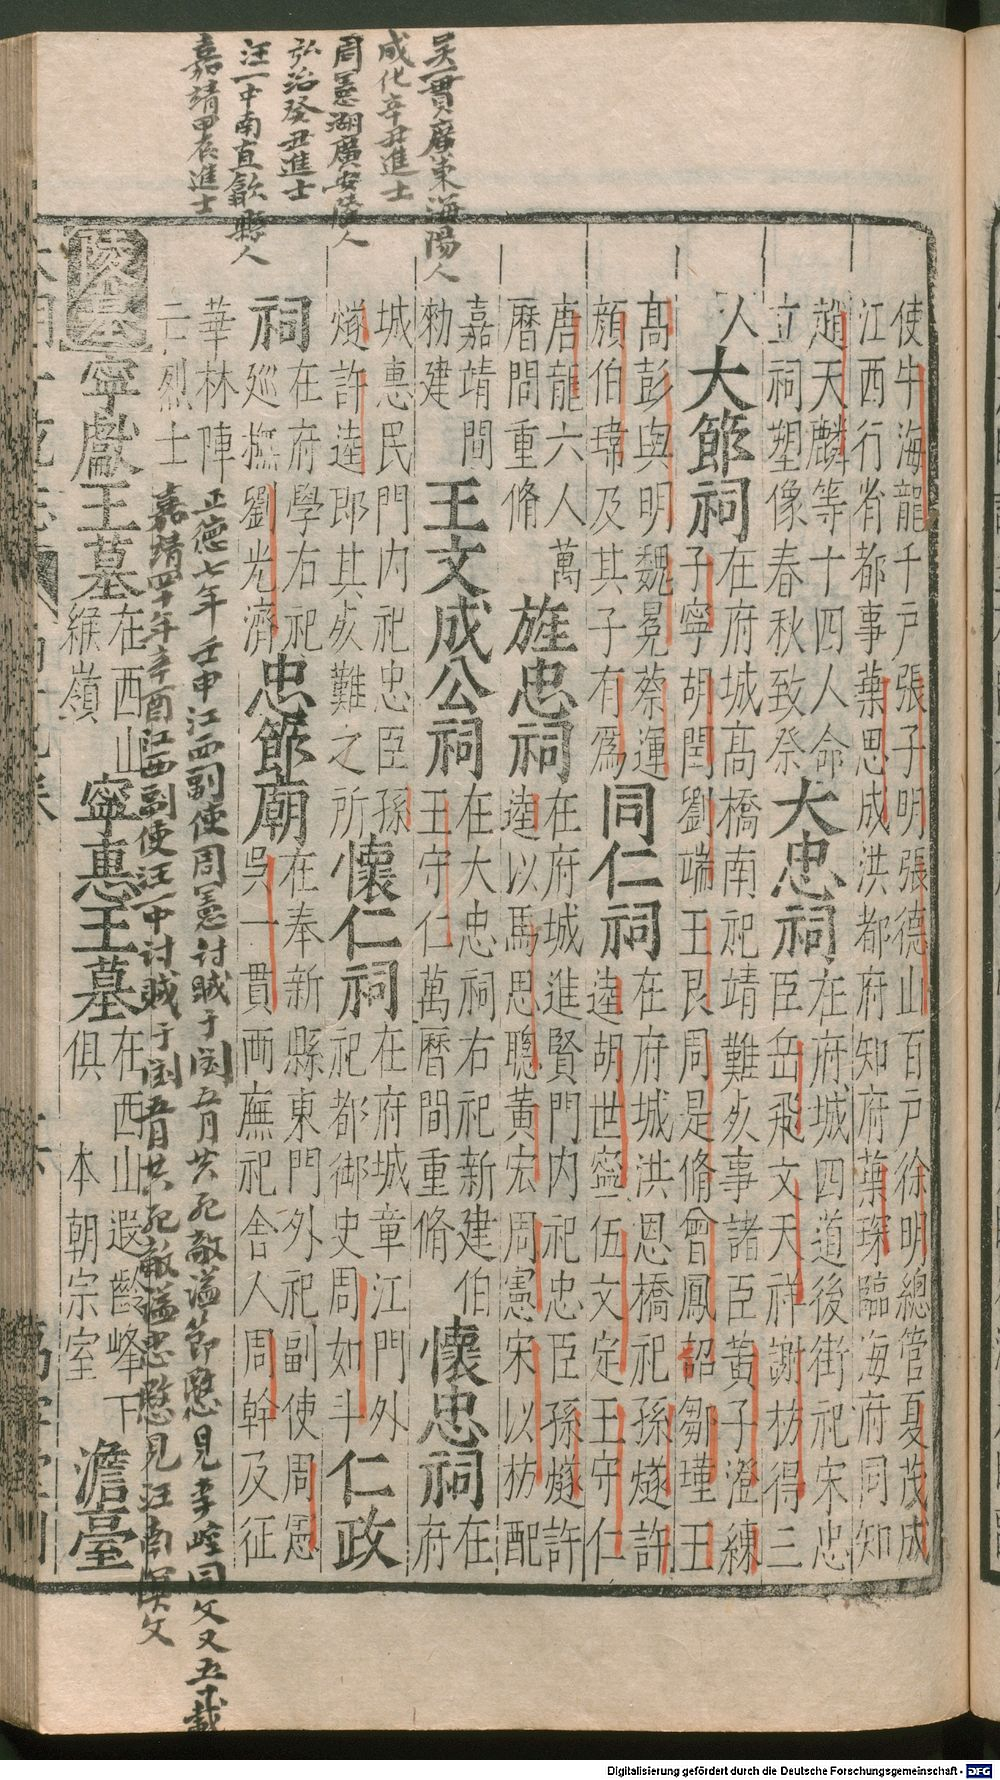 吳一貫廣東海陽人
成化辛丑進士
周憲湖廣安陸人
弘治癸丑進士
汪一中南直歙縣人
嘉靖甲辰進士
使牛海龍千戶張子明張德山百戶徐明總管夏茂成
江西行省都事葉思成洪都府知府葉琛臨海府同知
趙天麟等十四人命
立祠塑像春秋致祭
大忠祠
在府城四道後街祀宋忠
臣岳飛文天祥謝枋得三
人
大節祠
在府城高橋南祀靖難死事諸臣黃子澄練
子寧胡閏劉端王艮周是脩曾鳳韶鄒瑾王
高彭與明魏冕蔡運
顏伯瑋及其子有爲
同仁祠
在府城洪恩橋祀孫燧許
逵胡世寧伍文定王守仁
唐龍六人萬
曆間重脩
旌忠祠
在府城進賢門內祀忠臣孫燧許
逵以馬思聰黃宏周憲宋以枋配
嘉靖間
勑建
王文成公祠
在大忠祠右祀新建伯
王守仁萬曆間重脩
懷忠祠
在
府
城惠民門內祀忠臣孫
燧許逵即其死難之所
懷仁祠
在府城章江門外
祀都御史周如斗
仁政
祠
在府學右祀
廵撫劉光濟
忠節廟
在奉新縣東門外祀副使周憲
吳一貫兩廡祀舍人周幹及征
華林陣
亡烈士
正德七年壬申江西副使周憲討賊于閩五月共死敵謚節愍見李崆同文又五載
嘉靖四十年辛酉江西副使汪一中討賊于閩五月共死敵謚忠愍見汪南溟文
陵墓
寧獻王墓
在西山
緱嶺
寧惠王墓
在西山遐齡峰下
俱本朝宗室
澹臺
Digitalisierung gefördert durch die Deutsche Forschungsgemeinschaft - DFG